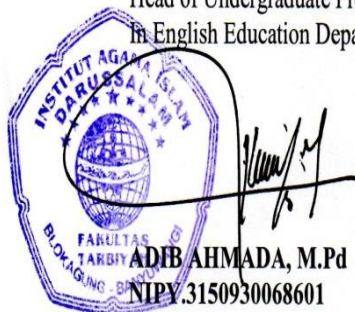 Head of Undergraduate
In English Education
INSTITUT AGAMA ISLAM
DARUSSALAM
FAKULTAS
TARBIYAH
BLOKAGUNG - BANYUWANGI
ADIB AHMADA, M.Pd
NIPY.3150930068601